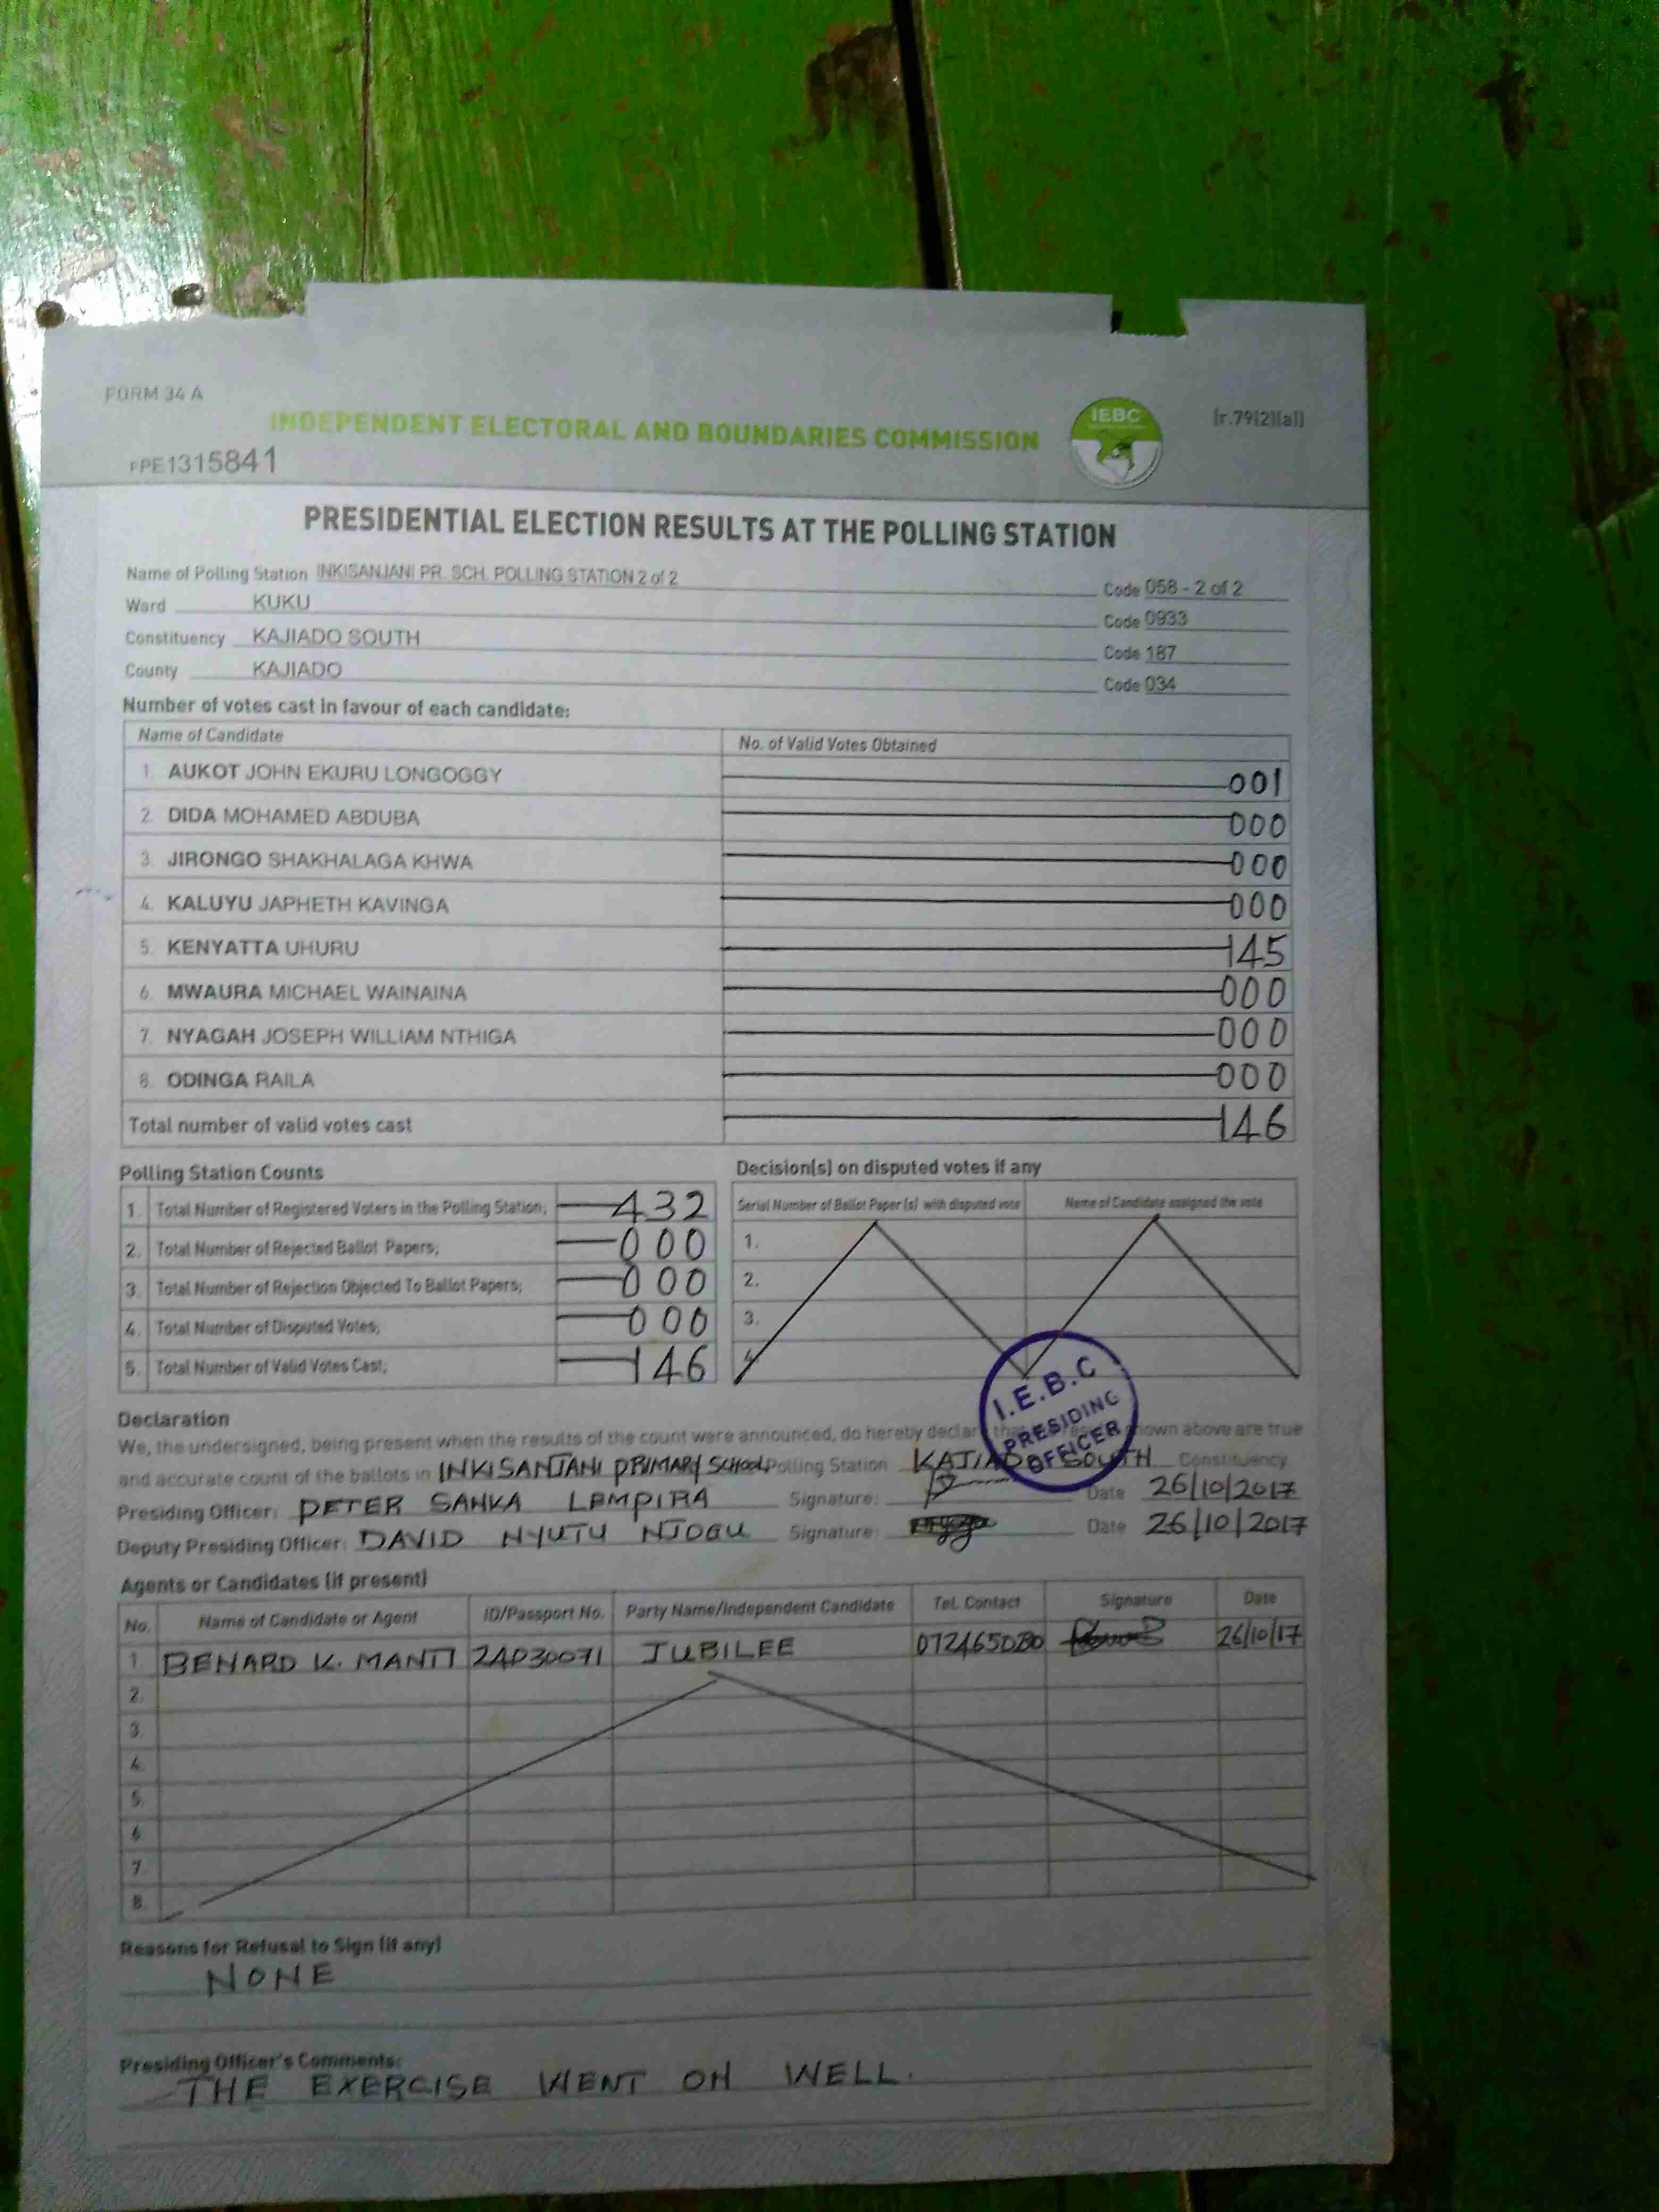 FORM 34 A
INDEPENDENT ELECTORAL AND BOUNDARIES COMMISSION
IEBC
(r.79(2)(a))
FPE1315841
PRESIDENTIAL ELECTION RESULTS AT THE POLLING STATION
Name of Polling Station INKISANJANI PR. SCH. POLLING STATION 2 of 2 Code 058 - 2 of 2
Ward KUKU Code 0933
Constituency KAJIADO SOUTH Code 187
County KAJIADO Code 034
Number of votes cast in favour of each candidate:
Name of Candidate No. of Valid Votes Obtained
1. AUKOT JOHN EKURU LONGOGGY 001
2. DIDA MOHAMED ABDUBA 000
3. JIRONGO SHAKHALAGA KHWA 000
4. KALUYU JAPHETH KAVINGA 000
5. KENYATTA UHURU 145
6. MWAURA MICHAEL WAINAINA 000
7. NYAGAH JOSEPH WILLIAM NTHIGA 000
8. ODINGA RAILA 000
Total number of valid votes cast 146
Polling Station Counts
1. Total Number of Registered Voters in the Polling Station; 432
2. Total Number of Rejected Ballot Papers; 000
3. Total Number of Rejection Objected To Ballot Papers; 000
4. Total Number of Disputed Votes; 000
5. Total Number of Valid Votes Cast; 146
Decision(s) on disputed votes if any
Serial Number of Ballot Paper (s) with disputed vote Name of Candidate assigned the vote
1.
2.
3.
4.
I.E.B.C
PRESIDING
OFFICER
Declaration
We, the undersigned, being present when the results of the count were announced, do hereby declare shown above are true
and accurate count of the ballots in INKISANJANI PRIMARY SCHOOL Polling Station KAJIADO SOUTH Constituency
Presiding Officer: PETER SANKA LEMPIRA Signature: Date 26/10/2017
Deputy Presiding Officer: DAVID NYUTU NJOGU Signature: Date 26/10/2017
Agents or Candidates (if present)
No. Name of Candidate or Agent ID/Passport No. Party Name/Independent Candidate Tel. Contact Signature Date
1 BENARD K. MANTI 24030071 JUBILEE 26/10/17
2.
3.
4.
5.
6.
7.
8.
Reasons for Refusal to Sign (if any)
NONE
Presiding Officer's Comments:
THE EXERCISE WENT ON WELL.